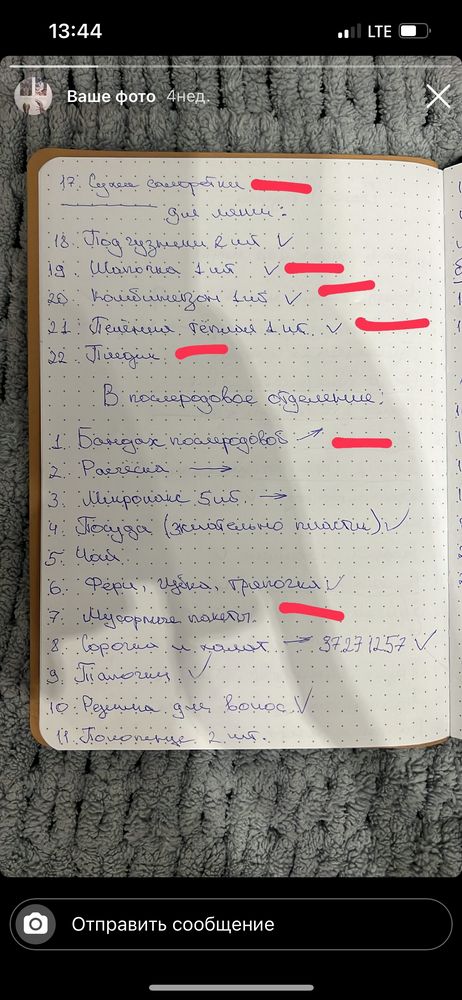 13:44
LTE
Ваше фото 4нед.
17. Сухие
для ляли:
18. Подгузники 2 шт ✓
19 Шапочка 1 шт ✓
20 Комбинезон 1 шт ✓
21 Пелёнка тёплая 1 шт. ✓
22. Пледик
В послеродовое отделение:
1. Бандаж послеродовой →
2 Расчёска →
3 Микролакс 5 шт. →
4 Посуда (желательно пластик) ✓
5. Чай
6. Фери, губка, тряпочка ✓
7. Мусорные пакеты
8 Сорочка и халат → 37271257 ✓
9. Тапочки ✓
10 Резинка для волос ✓
11. Полотенце 2 шт.
Отправить сообщение